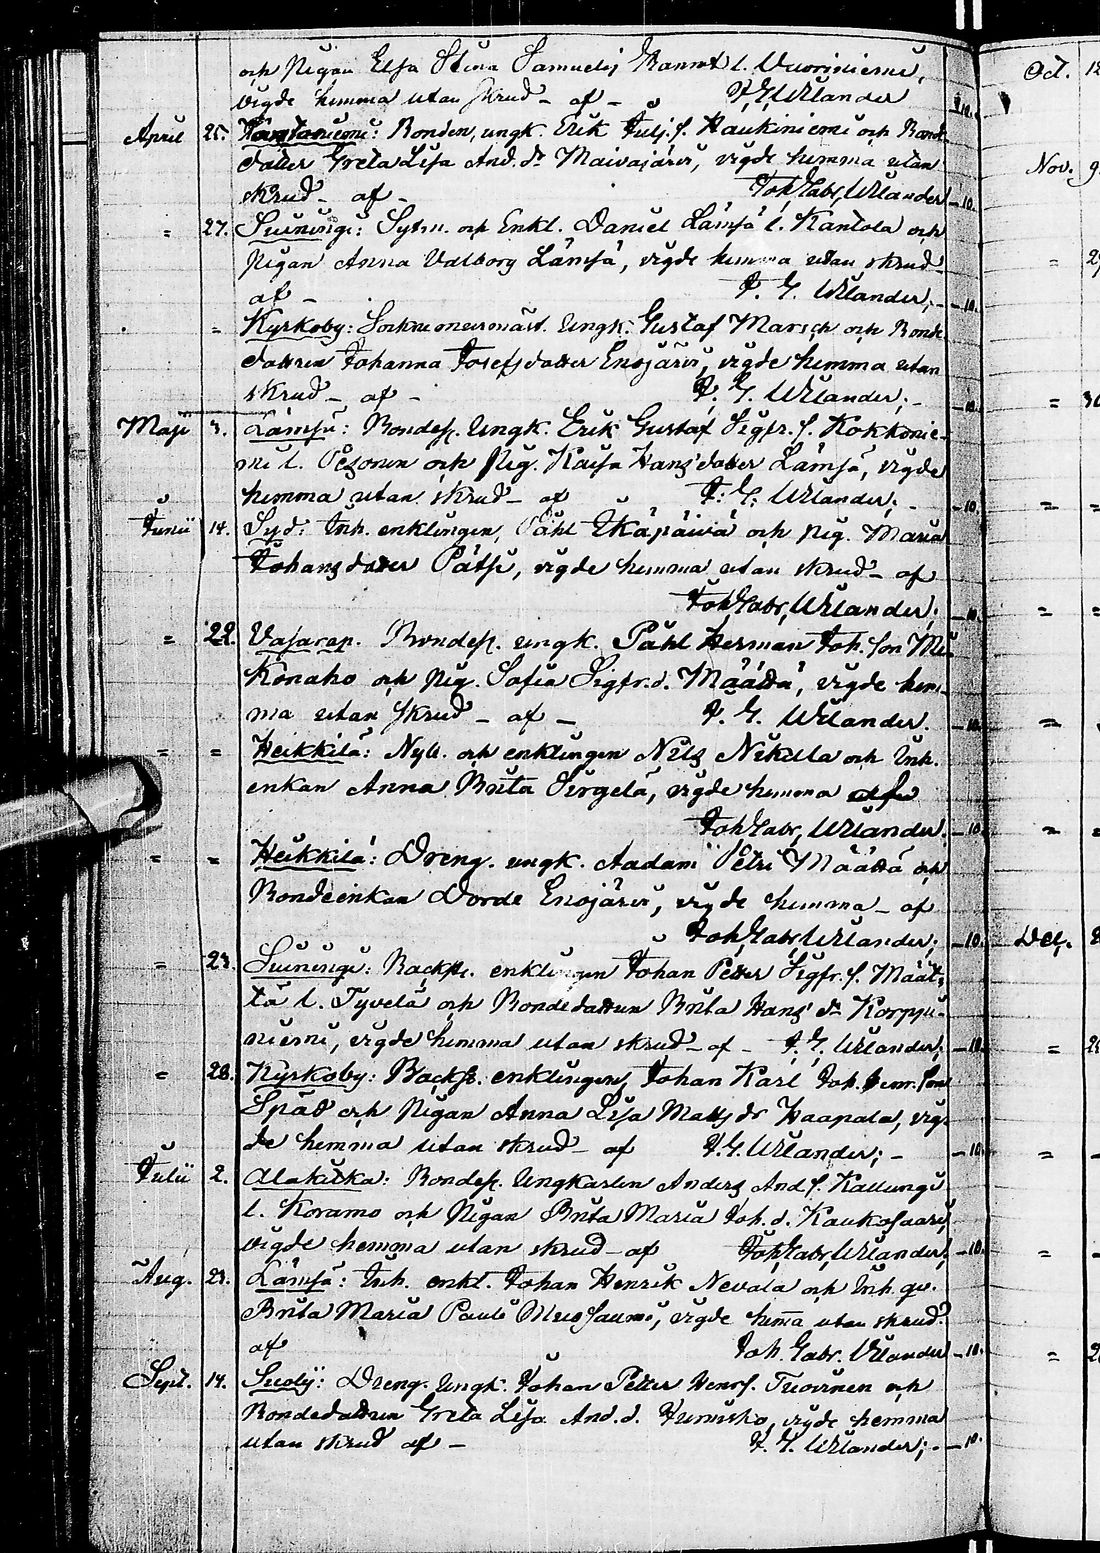 och Pigan Elsa Stina Samuelsj Hannt l. Vuoriniemi,
vigde hemma utan skrud - af - J. G. Wilander - 10.
April 25. Bonden, ungk. Erik Julj. s. Haukiniemi och Bonde
datter Greta Lisa And. dr Maivajärvi, vigde hemma utan
skrud - af - Joh. Gabr. Wilander - 10.
= 27. Suiningi: Sytn. och Enkl. Daniel Lämsä l. Kantola och
Pigan Anna Valborg Lämsä, vigde hemma utan skrud -
af - J. G. Wilander; - 10.
= Kyrkoby: Ungk. Gustaf Marsch och Bonde
dattren Johanna Josefsdatter Enojärvi, vigde hemma utan
skrud - af - J. G. Wilander; - 10.
Maji 3. Lämsä: Bondes. Ungk. Erik Gustaf Sigfr. s. Kokkonie-
mi l. Pesonen och Pig. Kaisa Hans datter Lämsä, vigde
hemma utan skrud - af J. G. Wilander; - 10.
Junii 14. Syd: Inh. enklingen, Påhl Ikäpäivä och Pig. Maria
Johansdatter Pätsi, vigde hemma utan skrud - af
Joh. Gabr. Wilander; 10.
= 22. Vasarap. Bondes. ungk. Påhl Herman Joh. son Mu-
konaho och Pig. Sofia Sigfr. d. Määttä, vigde hem-
ma utan skrud - af - J. G. Wilander. - 10.
= = Heikkilä: Nyb. och enklingen Nils Nikula och Inh.
enkan Anna Brita Pirgelä, vigde hemma
Joh. Gabr. Wilander. - 10.
= = Heikkilä: Dreng. ungk. Aadam Petri Määttä och
Bondeenkan Dorde Enojärvi, vigde hemma - af
Joh. Gabr. Wilander; - 10.
= 23. Suiningi: Backst. enklingen Johan Petter Sigfr. s. Määt-
tä l. Tyvelä och Bondedattren Brita Hans dr Korppi-
niemi, vigde hemma utan skrud - af - J. G. Wilander; - 10.
= 28. Kyrkoby: Backst. enklingen, Johan Karl Joh. Henr. son
Späd och Pigan Anna Lisa Matts dr Haapala, vig-
de hemma utan skrud - af J. G. Wilander; - - 10.
Julii 2. Alakitka: Bondes. Ungkarlen Anders And. s. Kallungi
l. Koramo och Pigan Brita Maria Joh. d. Kaukosaari,
vigde hemma utan skrud - af Joh. Gabr. Wilander; - 10.
Aug. 23. Lämsä: Inh. enkl. Johan Henrik Nevala och Inh. qv.
Brita Maria Pauli vigde hemma utan skrud
af Joh. Gabr. Wilander - 10.
Sept. 14. Dreng. Ungk. Johan Petter Henr. s. Tuovinen och
Bondedattren Greta Lisa And. d. vigde hemma
utan skrud af - J. G. Wilander; - 10.
Oct.
Nov.
Dec.